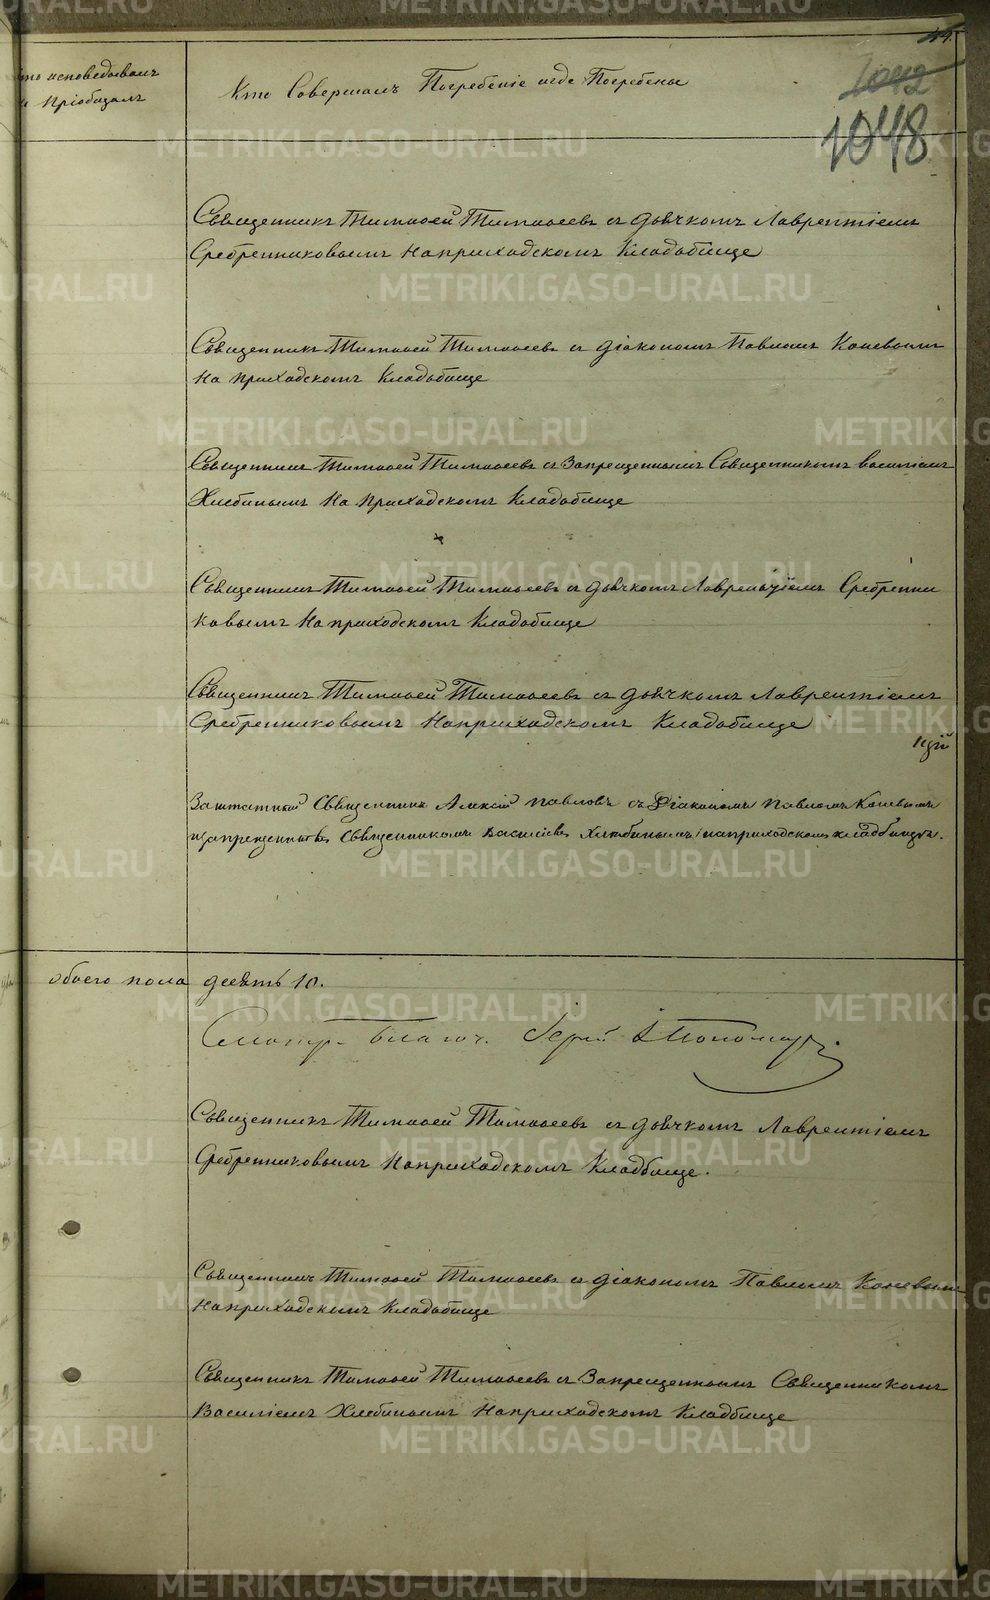 44.
1042
1048
кто исповедывалъ
и Пріобщалъ
Кто Совершалъ Погребеніе и где Погребены
Священникъ Тимофей Тимофеевъ съ дьячкомъ Лаврентіемъ
Сребренниковымъ На приходскомъ Кладьбище
Священникъ Тимофей Тимофеевъ съ діакономъ Павломъ Коневымъ
На приходскомъ Кладьбище
Священникъ Тимофей Тимофеевъ съ Запрещеннымъ Священникомъ Василіемъ
Хлебинымъ На приходскомъ Кладьбище
Священникъ Тимофей Тимофеевъ съ дьячкомъ Лаврентіемъ Сребренни
ковымъ На приходскомъ Кладьбище
Священникъ Тимофей Тимофеевъ съ дьячкомъ Лаврентіемъ
Сребренниковымъ На приходскомъ Кладьбище
Заштатный Священникъ Алексій Павловъ съ Діакономъ Павломъ Коневымъ
и запрещеннымъ Священникомъ Василіемъ Хлебинымъ на приходскомъ кладбище.
обоего пола десять 10.
Смотр. Благоч. Іерей Пономар.
Священникъ Тимофей Тимофеевъ съ дьячкомъ Лаврентіемъ
Сребренниковымъ На приходскомъ Кладбище.
Священникъ Тимофей Тимофеевъ съ діакономъ Павломъ Коневымъ
На приходскомъ Кладьбище
Священникъ Тимофей Тимофеевъ съ Запрещеннымъ Священникомъ
Василіемъ Хлебинымъ На приходскомъ Кладбище
METRIKI.GASO-URAL.RU